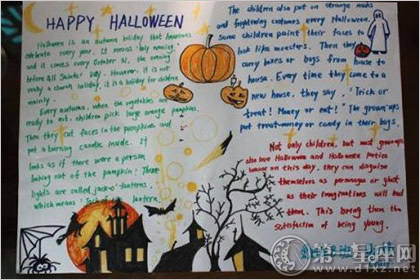 HAPPY HALLOWEEN
Halloween is an autumn holiday that Americans
celebrate every year. It means "holy evening,"
and it comes every October 31, the evening
before All Saints' Day. However, it is not
really a church holiday, it is a holiday for children
mainly.
Every autumn, when the vegetables are
ready to eat, children pick large orange pumpkins.
Then they cut faces in the pumpkins and
put a burning candle inside. It
looks as if there were a person
looking out of the pumpkin! These
lights are called jack-o'-lanterns,
which means "Jack of the lantern.
The children also put on strange masks
and frightening costumes every Halloween.
Some children paint their faces to
look like monsters. Then they
carry boxes or bags from house to
house. Every time they come to a
new house, they say, "Trick or
treat! Money or eat!" The grown-ups
put treat-money or candy in their bags.
Not only children, but most grown-ups
also love Halloween and Halloween parties
because on this day, they can disguise
themselves as personages or ghost
as their imaginations will lead
them. This bring them the
satisfaction of being young.
第一星座网
www.d1xz.net